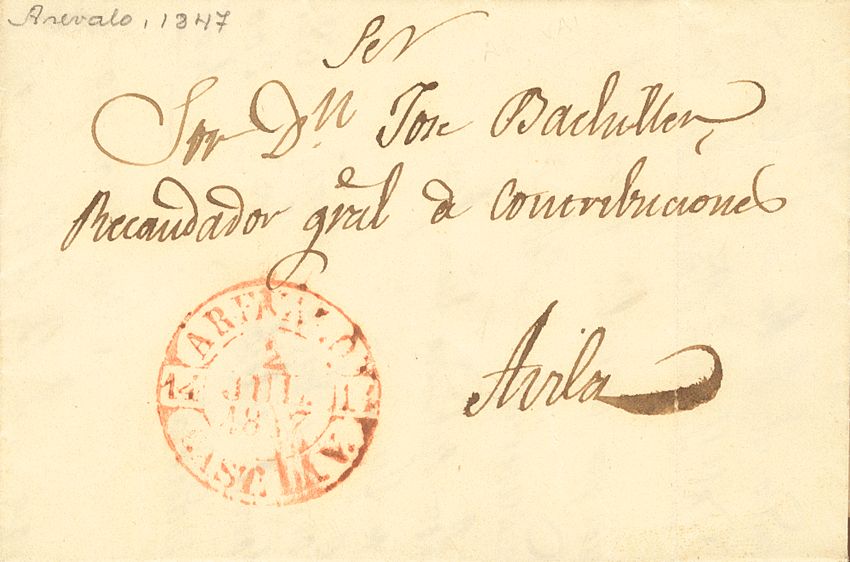 Arevalo, 1847
Ser
Sor Dn Jose Bachiller
Recaudador gral de Contribuciones
Avila
AREVALO
2
JUL.
1847
14 14
CAST. LA V.